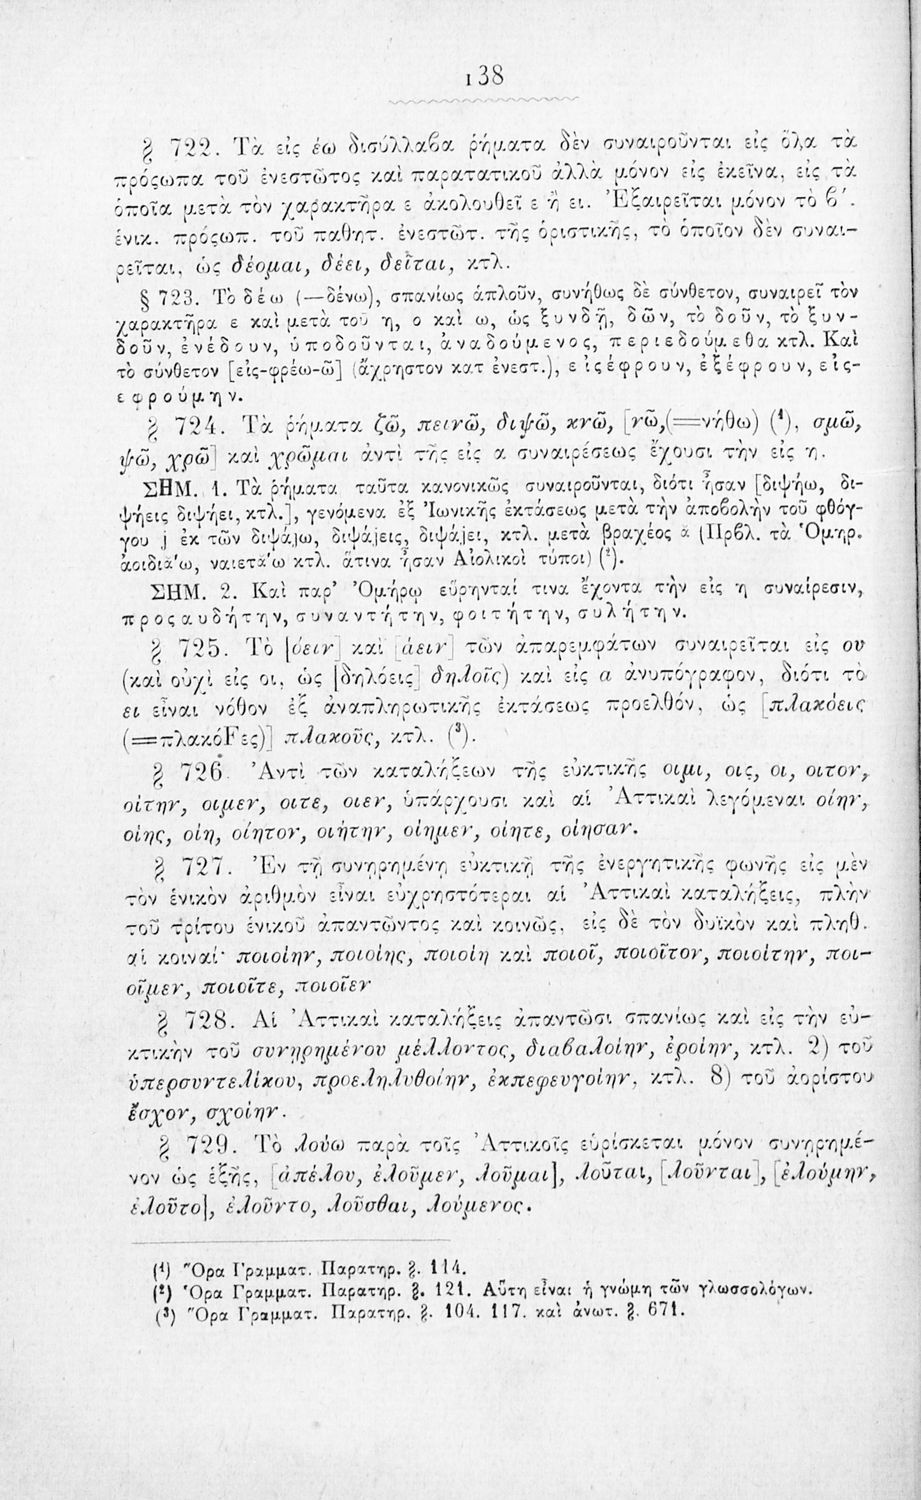 138
§ 722. Τὰ εἰς έω δισύλλαβα ῥήματα δὲν συναιροῦνται εἰς ὅλα τὰ
πρόςωπα τοῦ ἐνεστῶτος καὶ παρατατικοῦ ἀλλὰ μόνον εἰς ἐκεῖνα, εἰς τὰ
ὁποῖα μετὰ τὸν χαρακτῆρα ε ἀκολουθεῖ ε ἢ ει. Ἐξαιρεῖται μόνον τὸ β΄.
ἑνικ. πρόςωπ. τοῦ παθητ. ἐνεστῶτ. τῆς ὁριστικῆς, τὸ ὁποῖον δὲν συναι-
ρεῖται, ὡς δέομαι, δέει, δεῖται, κτλ.
§ 723. Τὸ δέω (—δένω), σπανίως ἁπλοῦν, συνήθως δὲ σύνθετον, συναιρεῖ τὸν
χαρακτῆρα ε καὶ μετὰ τοῦ η, ο καὶ ω, ὡς ξυνδῇ, δῶν, τὸ δοῦν, τὸ ξυν-
δοῦν, ἐνέδουν, ὑποδοῦνται, ἀναδούμενος, περιεδούμεθα κτλ. Καὶ
τὸ σύνθετον [εἰς-φρέω-ῶ] (ἄχρηστον κατ ἐνεστ.), εἰςέφρουν, ἐξέφρουν, εἰς-
εφρούμην.
§ 724. Τὰ ῥήματα ζῶ, πεινῶ, διψῶ, κνῶ, [νῶ,(=νήθω) (¹), σμῶ,
ψῶ, χρῶ] καὶ χρῶμαι ἀντὶ τῆς εἰς α συναιρέσεως ἔχουσι τὴν εἰς η.
ΣΗΜ. 1. Τὰ ῥήματα ταῦτα κανονικῶς συναιροῦνται, διότι ἦσαν [διψήω, δι-
ψήεις διψήει, κτλ.], γενόμενα ἐξ Ἰωνικῆς ἐκτάσεως μετὰ τὴν ἀποβολὴν τοῦ φθόγ-
γου j ἐκ τῶν διψάjω, διψάjεις, διψάjει, κτλ. μετὰ βραχέος ᾰ (Πρβλ. τὰ Ὁμηρ.
ἀοιδιά'ω, ναιετά'ω κτλ. ἅτινα ἦσαν Αἰολικοὶ τύποι) (²).
ΣΗΜ. 2. Καὶ παρ' Ὁμήρῳ εὕρηνταί τινα ἔχοντα τὴν εἰς η συναίρεσιν,
προςαυδήτην, συναντήτην, φοιτήτην, συλήτην.
§ 725. Τὸ [όειν] καὶ [άειν] τῶν ἀπαρεμφάτων συναιρεῖται εἰς ου
(καὶ οὐχὶ εἰς οι, ὡς [δηλόεις] δηλοῖς) καὶ εἰς α ἀνυπόγραφον, διότι τὸ
ει εἶναι νόθον ἐξ ἀναπληρωτικῆς ἐκτάσεως προελθόν, ὡς [πλακόεις
(=πλακόFες)] πλακοῦς, κτλ. (³).
§ 726. Ἀντὶ τῶν καταλήξεων τῆς εὐκτικῆς οιμι, οις, οι, οιτον,
οίτην, οιμεν, οιτε, οιεν, ὑπάρχουσι καὶ αἱ Ἀττικαὶ λεγόμεναι οίην,
οίης, οίη, οίητον, οιήτην, οίημεν, οίητε, οίησαν.
§ 727. Ἐν τῇ συνῃρημένῃ εὐκτικῇ τῆς ἐνεργητικῆς φωνῆς εἰς μὲν
τὸν ἑνικὸν ἀριθμὸν εἶναι εὐχρηστότεραι αἱ Ἀττικαὶ καταλήξεις, πλὴν
τοῦ τρίτου ἑνικοῦ ἀπαντῶντος καὶ κοινῶς, εἰς δὲ τὸν δυϊκὸν καὶ πληθ.
αἱ κοιναί· ποιοίην, ποιοίης, ποιοίη καὶ ποιοῖ, ποιοῖτον, ποιοίτην, ποι-
οῖμεν, ποιοῖτε, ποιοῖεν
§ 728. Αἱ Ἀττικαὶ καταλήξεις ἀπαντῶσι σπανίως καὶ εἰς τὴν εὐ-
κτικὴν τοῦ συνῃρημένου μέλλοντος, διαβαλοίην, ἐροίην, κτλ. 2) τοῦ
ὑπερσυντελίκου, προεληλυθοίην, ἐκπεφευγοίην, κτλ. 8) τοῦ ἀορίστου
ἔσχον, σχοίην.
§ 729. Τὸ λούω παρὰ τοῖς Ἀττικοῖς εὑρίσκεται μόνον συνῃρημέ-
νον ὡς ἑξῆς, [ἀπέλου, ἐλοῦμεν, λοῦμαι], λοῦται, [λοῦνται], [ἐλούμην,
ἐλοῦτο], ἐλοῦντο, λοῦσθαι, λούμενος.
(¹) Ὅρα Γραμματ. Παρατηρ. §. 114.
(²) Ὅρα Γραμματ. Παρατηρ. §. 121. Αὕτη εἶναι ἡ γνώμη τῶν γλωσσολόγων.
(³) Ὅρα Γραμματ. Παρατηρ. §. 104. 117. καὶ ἀνωτ. §. 671.